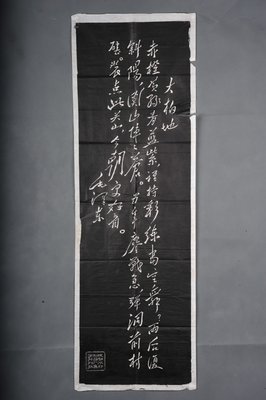 大柏地
赤橙黄绿青蓝紫谁持彩练当空舞々雨后復
斜陽,関山陣々蒼。当年鏖戰急,彈洞前村
壁。裝点此关山,今朝更好看。
毛泽东